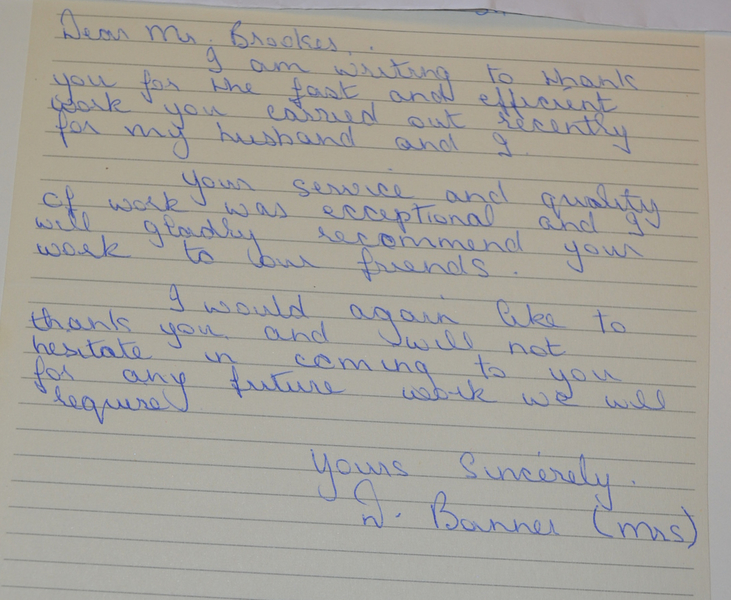 Dear Mr. Brookes,
I am writing to thank
you for the fast and efficient
work you carried out recently
for my husband and I.
Your service and quality
of work was exceptional and I
will gladly recommend your
work to our friends.
I would again like to
thank you and will not
hesitate in coming to you
for any future work we will
require.
Yours Sincerely.
Banner (Mrs)